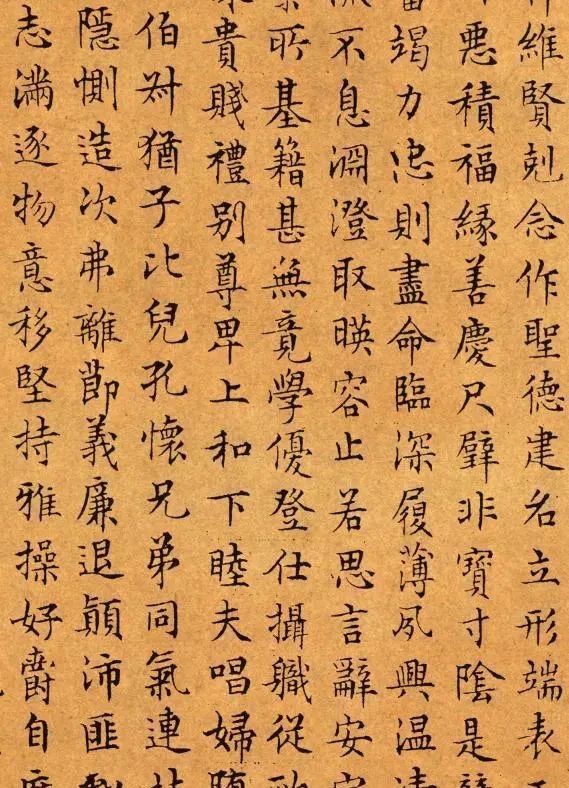 維賢剋念作聖德建名立形端表
悪積福緣善慶尺璧非寶寸陰是
竭力忠則盡命臨深履薄夙興温
不息淵澄取暎容止若思言辭安
所基籍甚無竟學優登仕攝職從
貴賤禮別尊卑上和下睦夫唱婦
伯叔猶子比兒孔懷兄弟同氣連
隱惻造次弗離節義廉退顛沛匪
志滿逐物意移堅持雅操好爵自